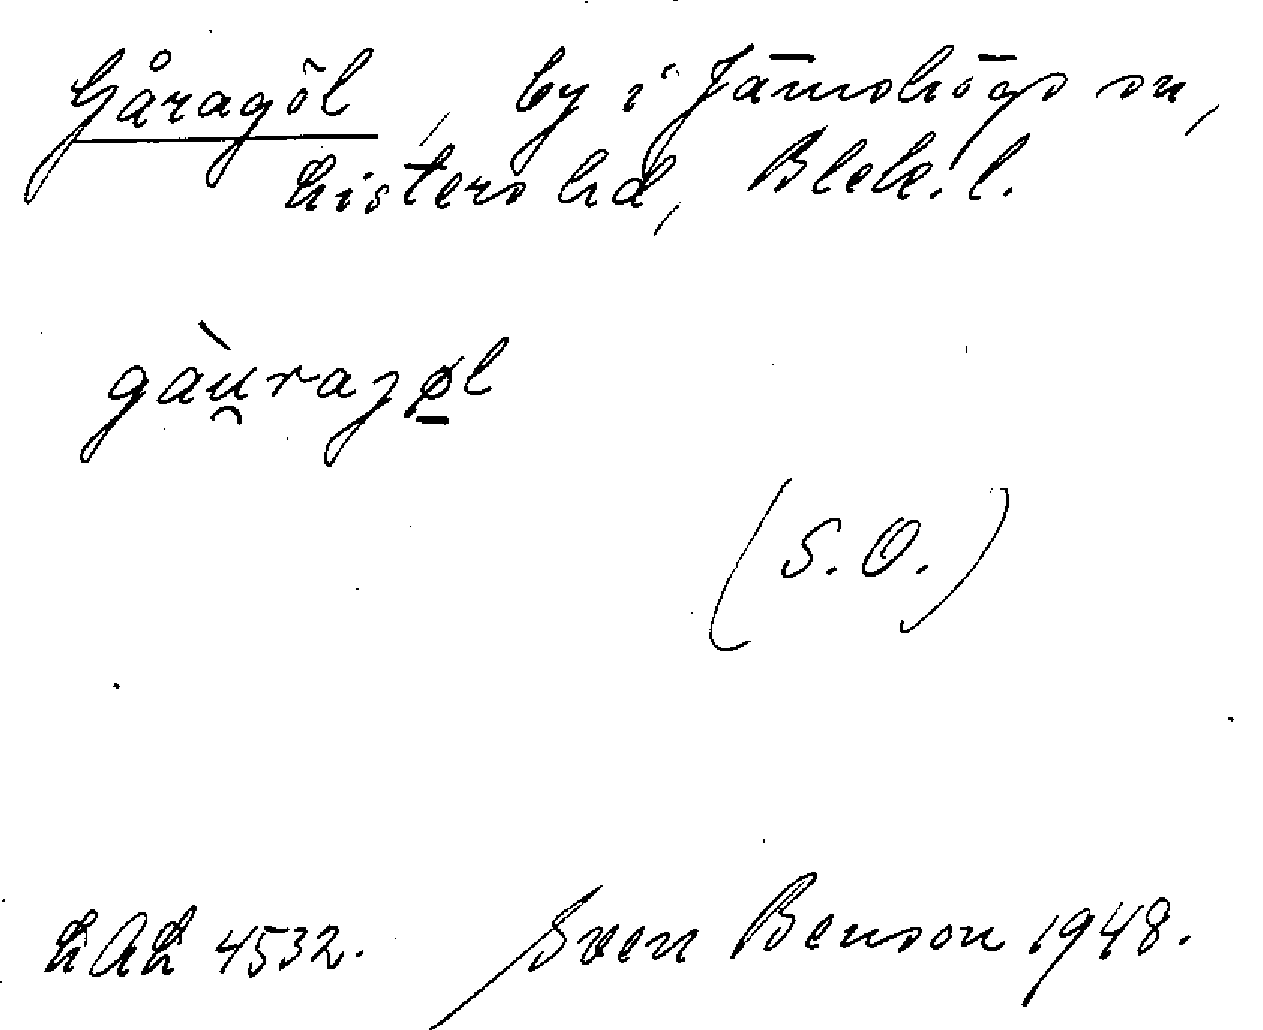 Gåragöl, by i Jämshögs sn,
Listers hd, Blek. l.
gàu̯rajø̠l
(S. O.)
LAL 4532. Sven Benson 1948.